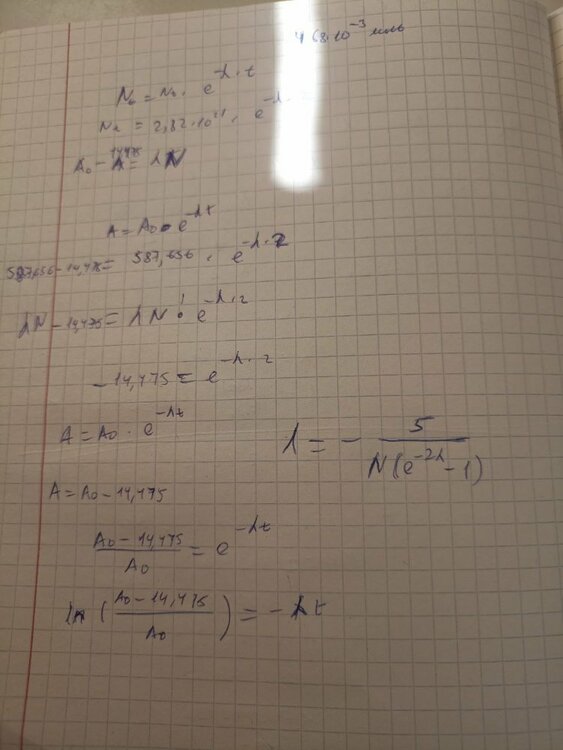 4,68·10⁻³ моль
N₀ = N₀ · e^(-λ·t)
N₂ = 2,82·10²¹ · e^(-λ·
A₀ - 14,475 = λN
A = A₀ · e^(-λt)
587,656 - 14,475 = 587,656 · e^(-λ·2)
λN - 14,475 = λN · e^(-λ·2)
-14,475 = e^(-λ·2)
A = A₀ · e^(-λt)
λ = - 5 / (N(e^(-2λ) - 1))
A = A₀ - 14,475
(A₀ - 14,475) / A₀ = e^(-λt)
ln ((A₀ - 14,475) / A₀) = -λt